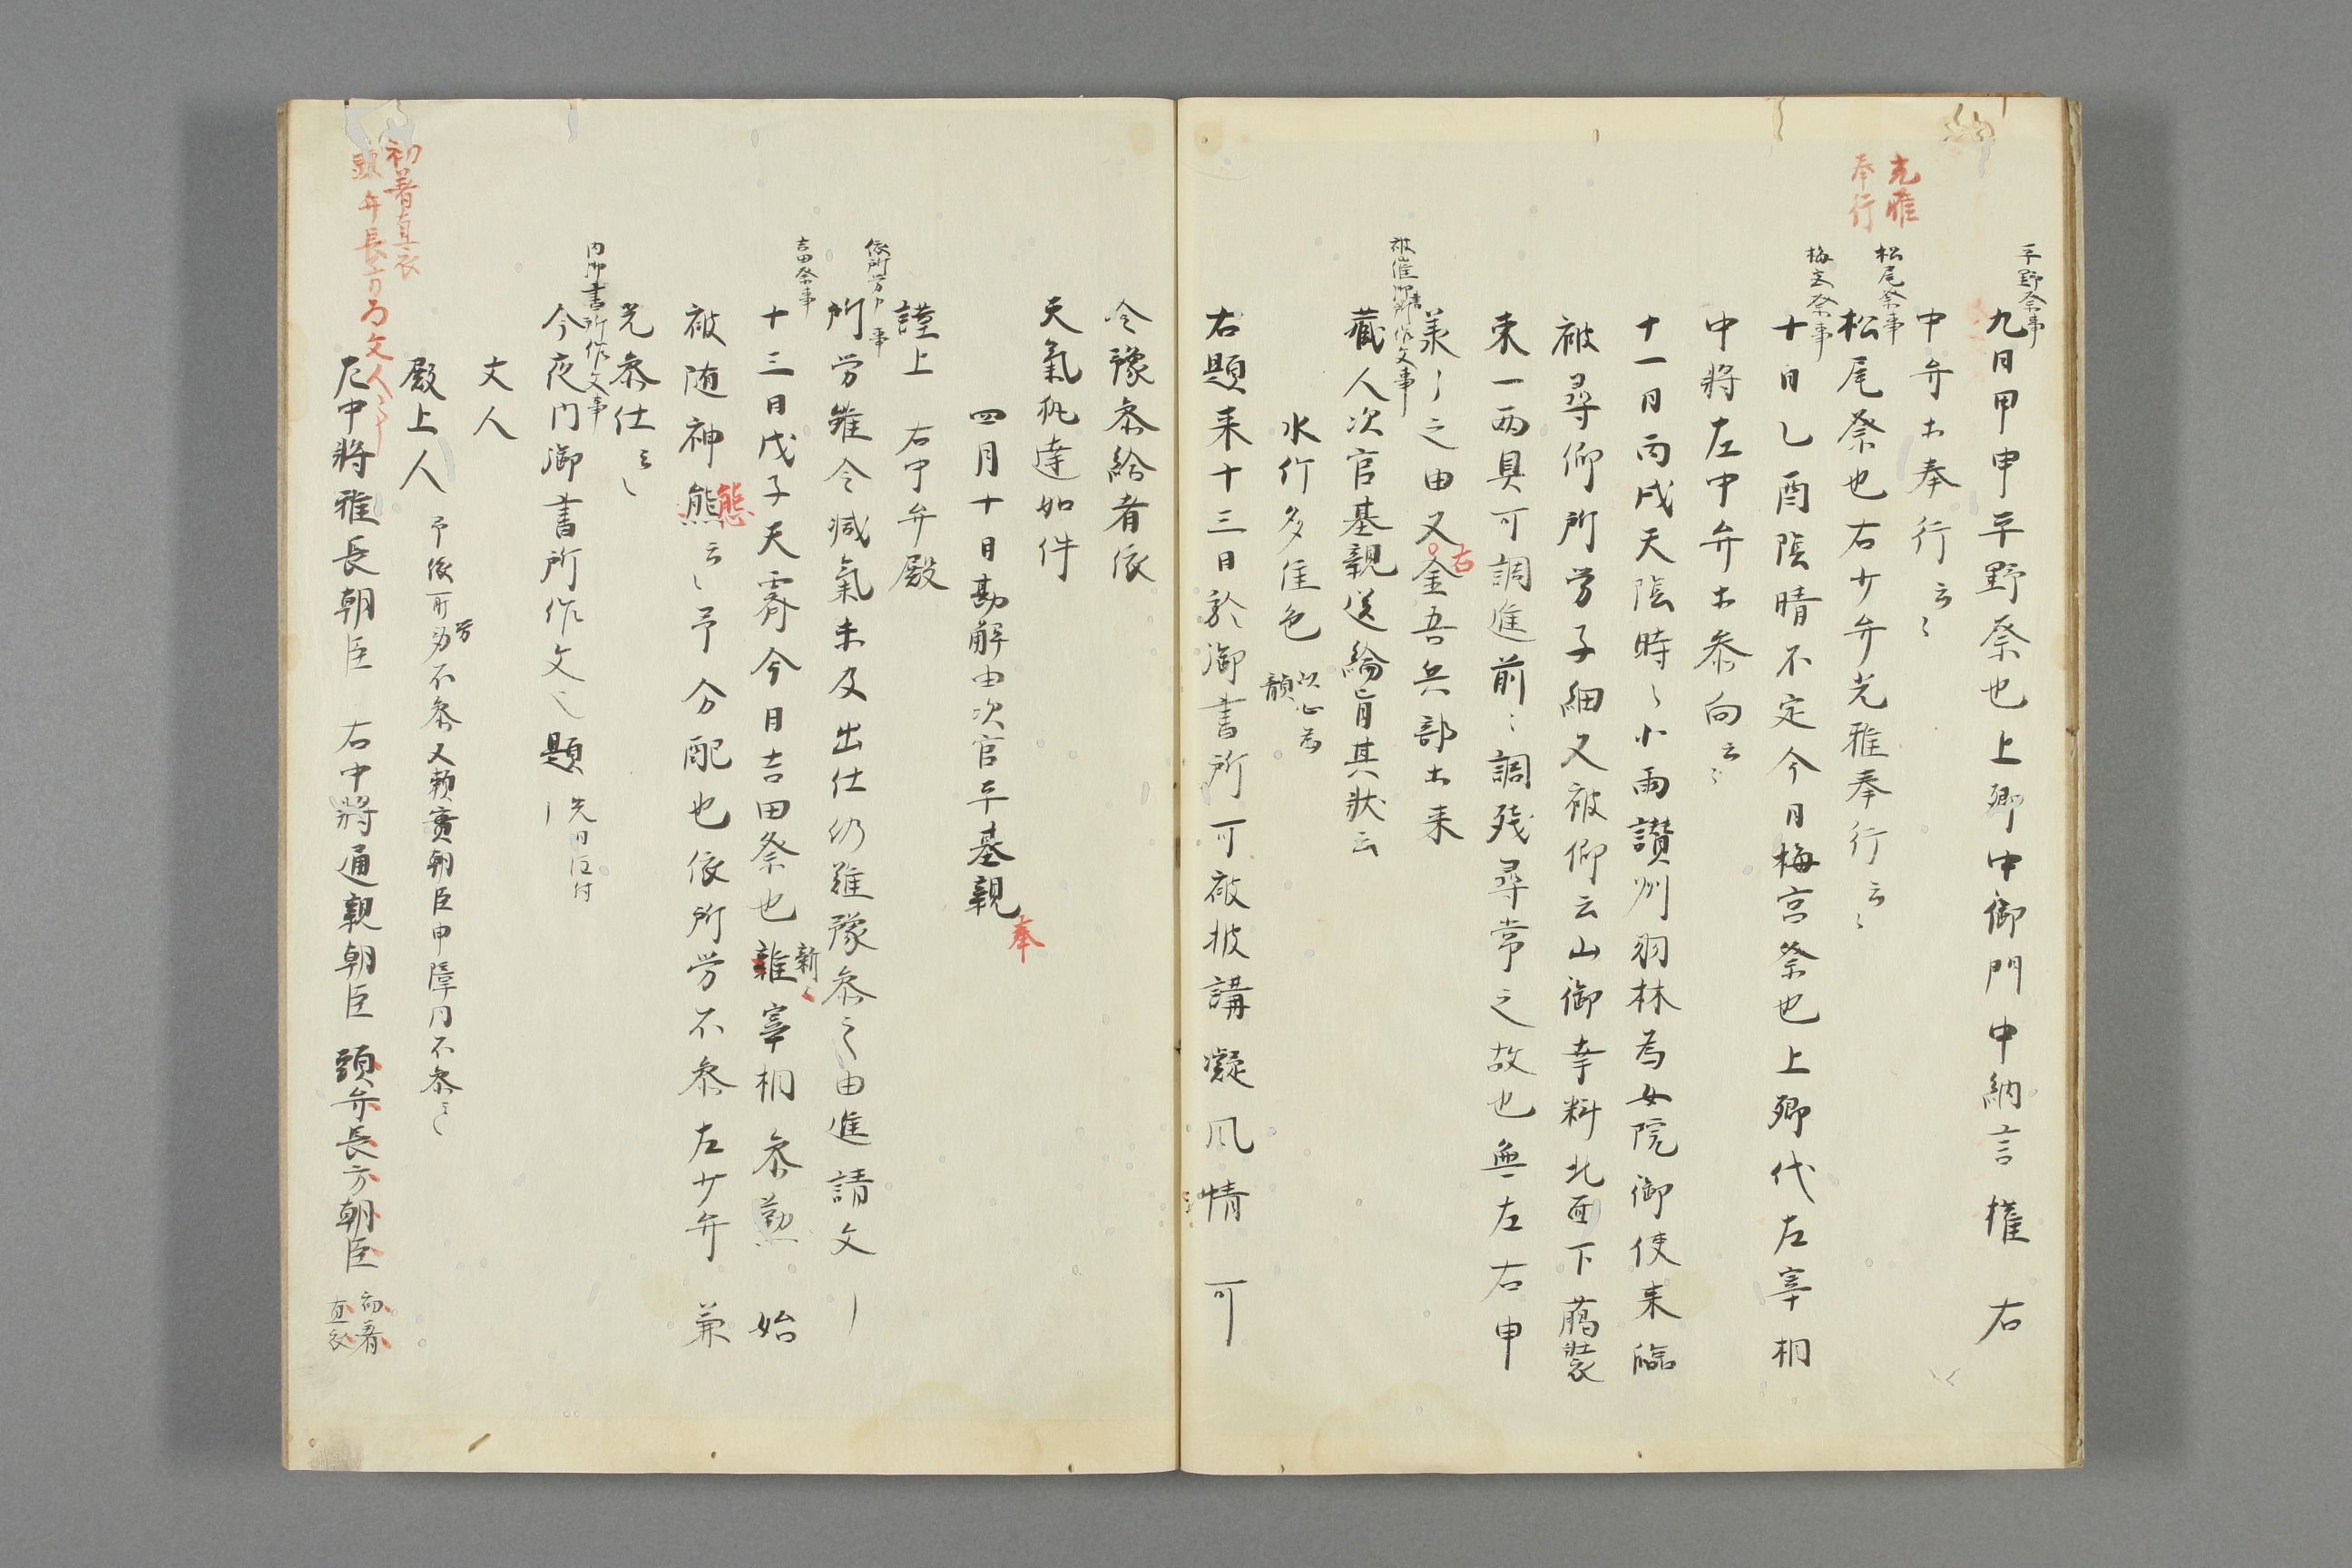 平野祭事
九日甲申平野祭也上卿中御門中納言権右
中弁木奉行云々
光雅
奉行
松尾祭事
松尾祭也右少弁光雅奉行云々
梅宮祭事
十日乙酉陰晴不定今日梅宮祭也上卿代左宰相
中將左中弁木参向云々
十一日丙戌天陰時々小雨讃州羽林為女院御使来臨
被尋仰所労子細又被仰云山御幸料北面下﨟装
束一両具可調進前々調残尋常之故也無左右申
美了之由又金吾兵部木来
右
被催御書所作文事
蔵人次官基親送綸旨其状云
水竹多佳色 以心為韻
右題来十三日於御書所可被披講凝風情可
令豫参給者依
天氣執達如件
四月十日勘解由次官平基親
奉
謹上 右中弁殿
依所労申事
所労雖令減氣未及出仕仍難豫参之由進請文
吉田祭事
十三日戊子天霽今日吉田祭也雑宰相参勤始
新
被随神熊云々予分配也依所労不参左少弁兼
態
光参仕云々
内御書所作文事
今夜門御書所作文云々題 先日注付
文人
殿上人 予依所労不参又頼實朝臣申障同不参云々
労
左中將雅長朝臣 右中將通親朝臣 頭弁長方朝臣 初着直衣
初着直衣
頭弁長方為文人